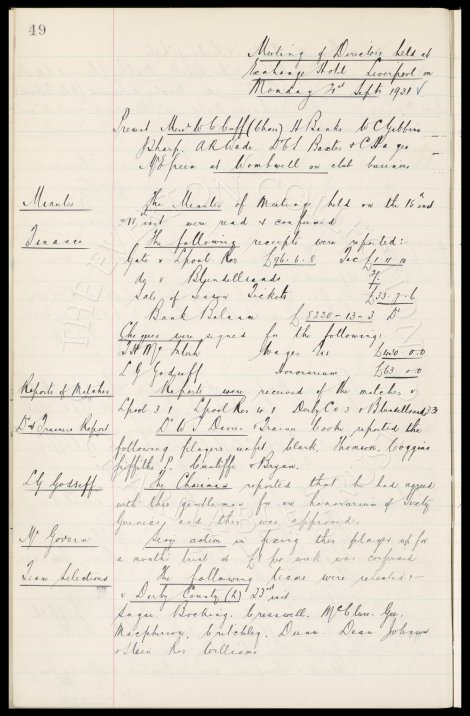 49
Meeting of Directors held at
Exchange Hotel Liverpool on
Monday 21st Septr 1931
Present Messrs W C Cuff (Chair) H Banks W C Gibbins
J Sharp. A R Wade. Dr C S Baxter & C Hayes
Mr Green at Wombwell on club business
Minutes
The Minutes of Meetings held on the 15th inst
inst were read & confirmed
Finance
The following receipts were reported:-
Gate v Lpool Res £96-6-8
do v Blundellsands
Sale of Season Tickets £33.7.6
Bank Balance £8320-13-3 Dr
Cheques were signed for the followings:
T H McIntosh Wages &s £430-0.0
L G Godsiff Honorarium £63-0.0
Reports of Matches
Reports were received of the matches v
Lpool 3.1 Lpool Res 4.1 Derby Co 3 v Blundellsand 33
Dr & Trainers Report
Dr W J Davies & Trainers book reported the
following players unfit Clark, Thomson, Coggins
Griffiths P. Cunliffe & Bryan.
L G Godsiff.
The Chairman reported that he had agreed
with this gentleman for an honorarium of Sixty
Guineas and this was approved.
Mc Govern
Secy action in fixing this player up for
a months trial at per week was confirmed
Team Selections
The following teams were selected:-
v Derby County (h)
Sagar. Bocking. Cresswell. McClure. Gee.
Macpherson, Critchley. Dunn. Dean. Johnson
& Stein Res Williams